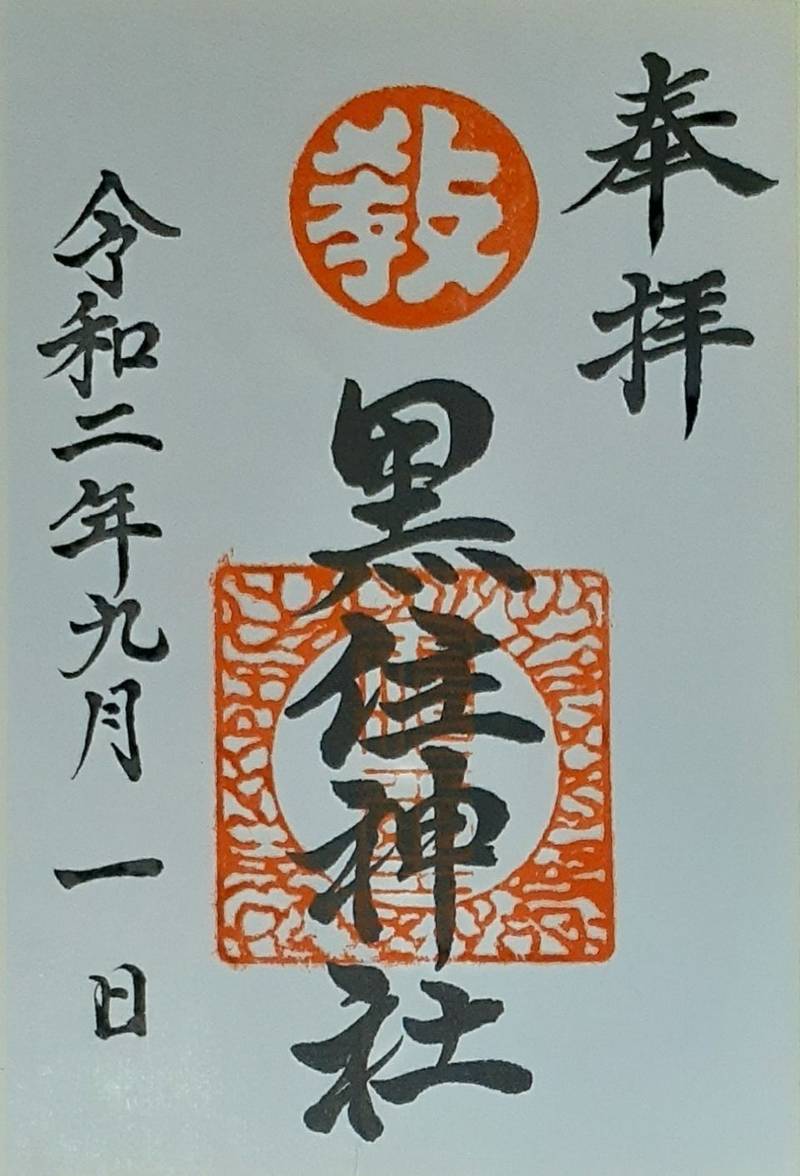 奉拝
教
黒住神社
令和二年九月一日